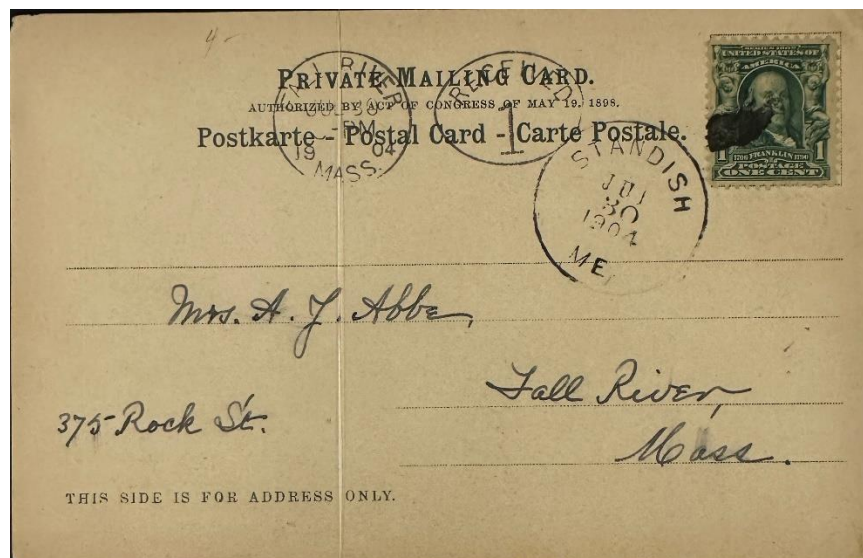 4-
PRIVATE MAILING CARD.
AUTHORIZED BY ACT OF CONGRESS OF MAY 19, 1898.
Postkarte - Postal Card - Carte Postale.
FALL RIVER
30
-PM
19 04
MASS.
RECEIVED
1
STANDISH
JUL
30
1904
ME.
SERIES 1902
UNITED STATES OF
AMERICA
1706 FRANKLIN 1790
1 POSTAGE 1
ONE CENT
Mrs. A. J. Abbe,
375 Rock St.
Fall River,
Mass.
THIS SIDE IS FOR ADDRESS ONLY.